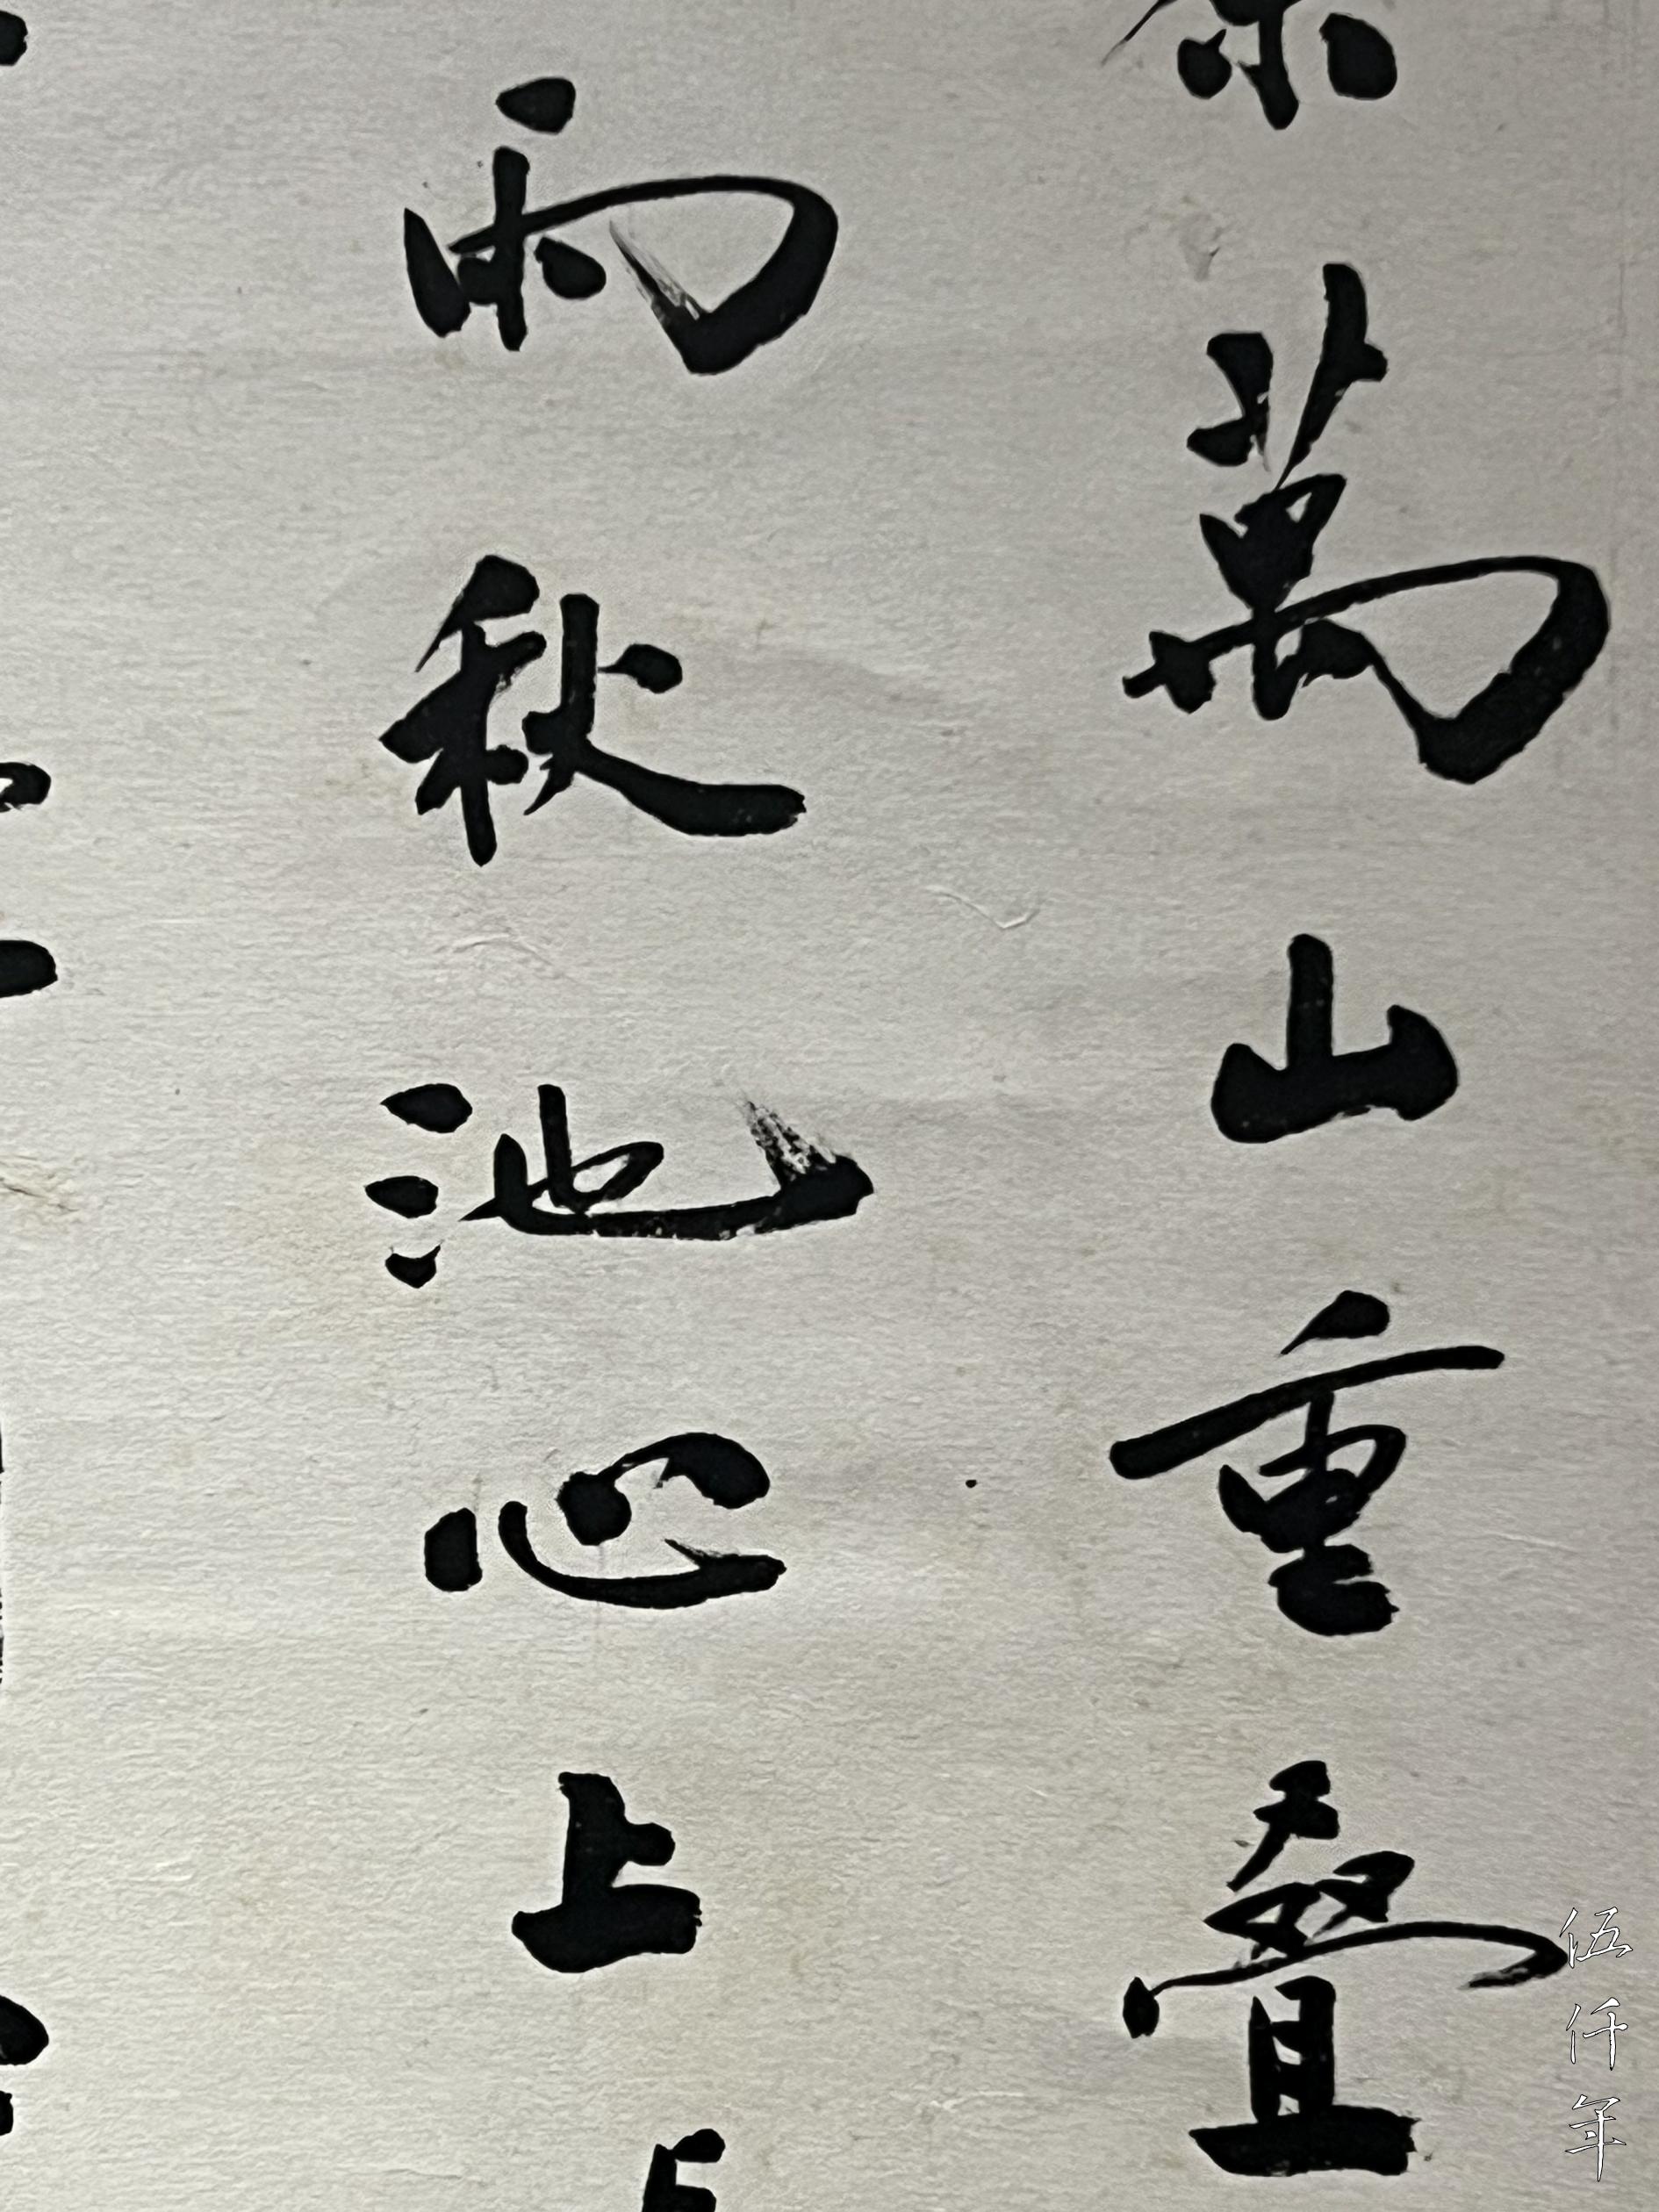 萬山重疊
雨秋池心上
伍仟年